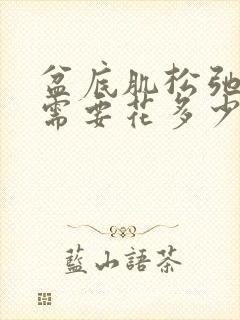 盆底肌松弛
需要花多少
藍山語茶